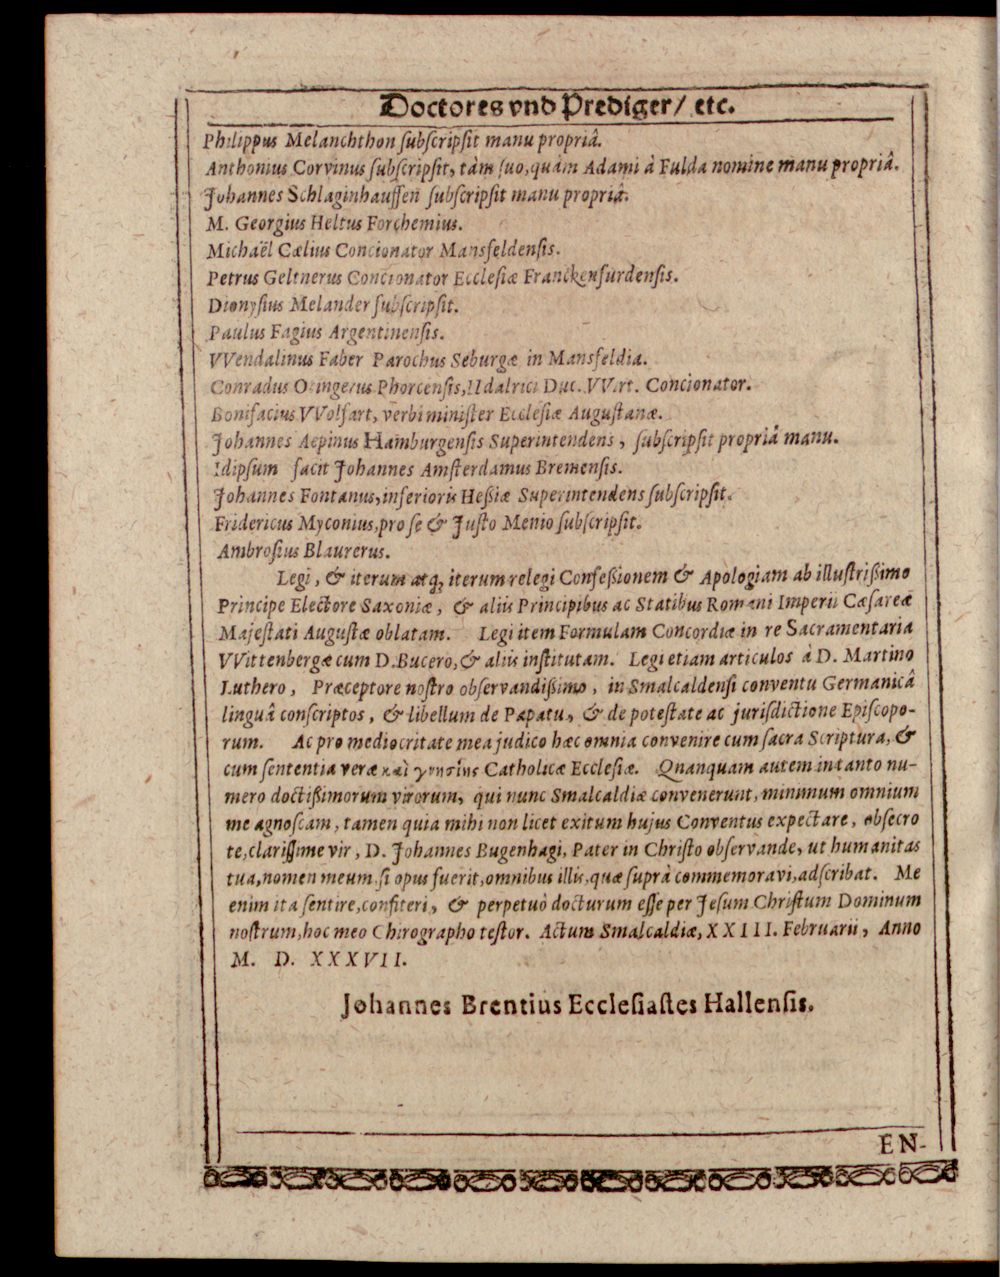 Doctores vnd Prediger/ etc.
Philippus Melanchthon ſubſcripſit manu propriâ.
Anthonius Corvinus ſubſcripſit, tàm ſuo, quàm Adami à Fulda nomine manu propriâ.
Johannes Schlaginhauſſen ſubſcripſit manu propriâ.
M. Georgius Heltus Forchemius.
Michaël Cælius Concionator Mansfeldenſis.
Petrus Geltnerus Concionator Eccleſiæ Franckenfurdenſis.
Dionyſius Melander ſubſcripſit.
Paulus Fagius Argentinenſis.
VVendalinus Faber Parochus Seburgæ in Mansfeldia.
Conradus Otingerus Phorcenſis, Udalrici Duc. VVirt. Concionator.
Bonifacius VVolfart, verbi miniſter Eccleſiæ Auguſtanæ.
Johannes Aepinus Hamburgenſis Superintendens, ſubſcripſit propriâ manu.
Idipſum facit Johannes Amſterdamus Bremenſis.
Johannes Fontanus, inferioris Heßiæ Superintendens ſubſcripſit.
Fridericus Myconius, pro ſe & Juſto Menio ſubſcripſit.
Ambroſius Blaurerus.
Legi, & iterum atq; iterum relegi Confeßionem & Apologiam ab illuſtrißimo
Principe Electore Saxoniæ, & aliis Principibus ac Statibus Romani Imperii Cæſareæ
Majeſtati Auguſtæ oblatam. Legi item Formulam Concordiæ in re Sacramentaria
VVittenbergæ cum D. Bucero, & aliis inſtitutam. Legi etiam articulos à D. Martino
Luthero, Præceptore noſtro obſervandißimo, in Smalcaldenſi conventu Germanicâ
linguâ conſcriptos, & libellum de Papatu, & de poteſtate ac jurisdictione Epiſcopo-
rum. Ac pro mediocritate mea judico hæc omnia convenire cum ſacra Scriptura, &
cum ſententia veræ καὶ γνησίης Catholicæ Eccleſiæ. Quanquam autem in tanto nu-
mero doctißimorum virorum, qui nunc Smalcaldiæ convenerunt, minimum omnium
me agnoſcam, tamen quia mihi non licet exitum hujus Conventus expectare, obſecro
te, clariſſime vir, D. Johannes Bugenhagi, Pater in Chriſto obſervande, ut humanitas
tua, nomen meum, ſi opus fuerit, omnibus illis, quæ ſuprà commemoravi, adſcribat. Me
enim ita ſentire, confiteri, & perpetuò docturum eſſe per Jeſum Chriſtum Dominum
noſtrum, hoc meo Chirographo teſtor. Actum Smalcaldiæ, XXIII. Februarii, Anno
M. D. XXXVII.
Johannes Brentius Eccleſiaſtes Hallenſis.
EN-